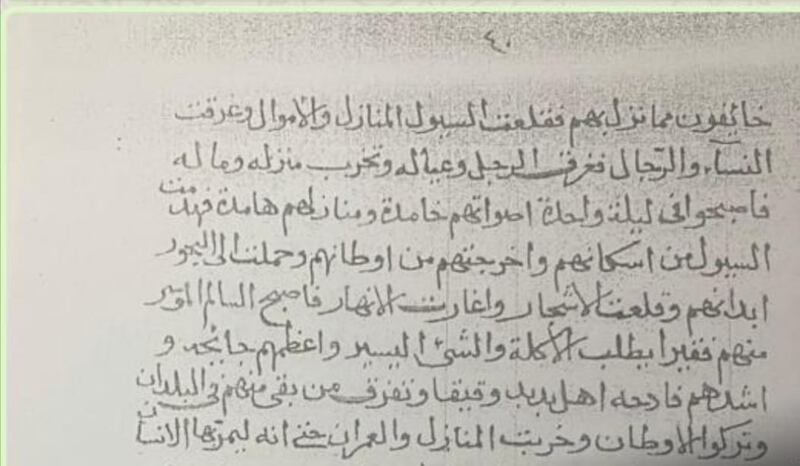 ٤٠
خائفون مما نزل بهم فقلعت السيول المنازل والاموال وغرقت
النسآء والرجال فغرق الرجل وعياله وتخرب منزله وماله
فاصبحوا في ليلة واحدة اصواتهم خامدة ومنازلهم هامدة فهدمت
السيول من اسكانهم واخرجتهم من اوطانهم وحملت الى البحور
ابدانهم وقلعت الاشجار واغارت الانهار فاصبح السالم
منهم فقيرا يطلب الأكلة والشئ اليسير واعظمهم و
اشدهم فادحه اهل بدبد وقيقا وتفرق من بقى منهم في البلدان
وتركوا الاوطان وخربت المنازل والعمران حتى انه ليمر بها الانسان